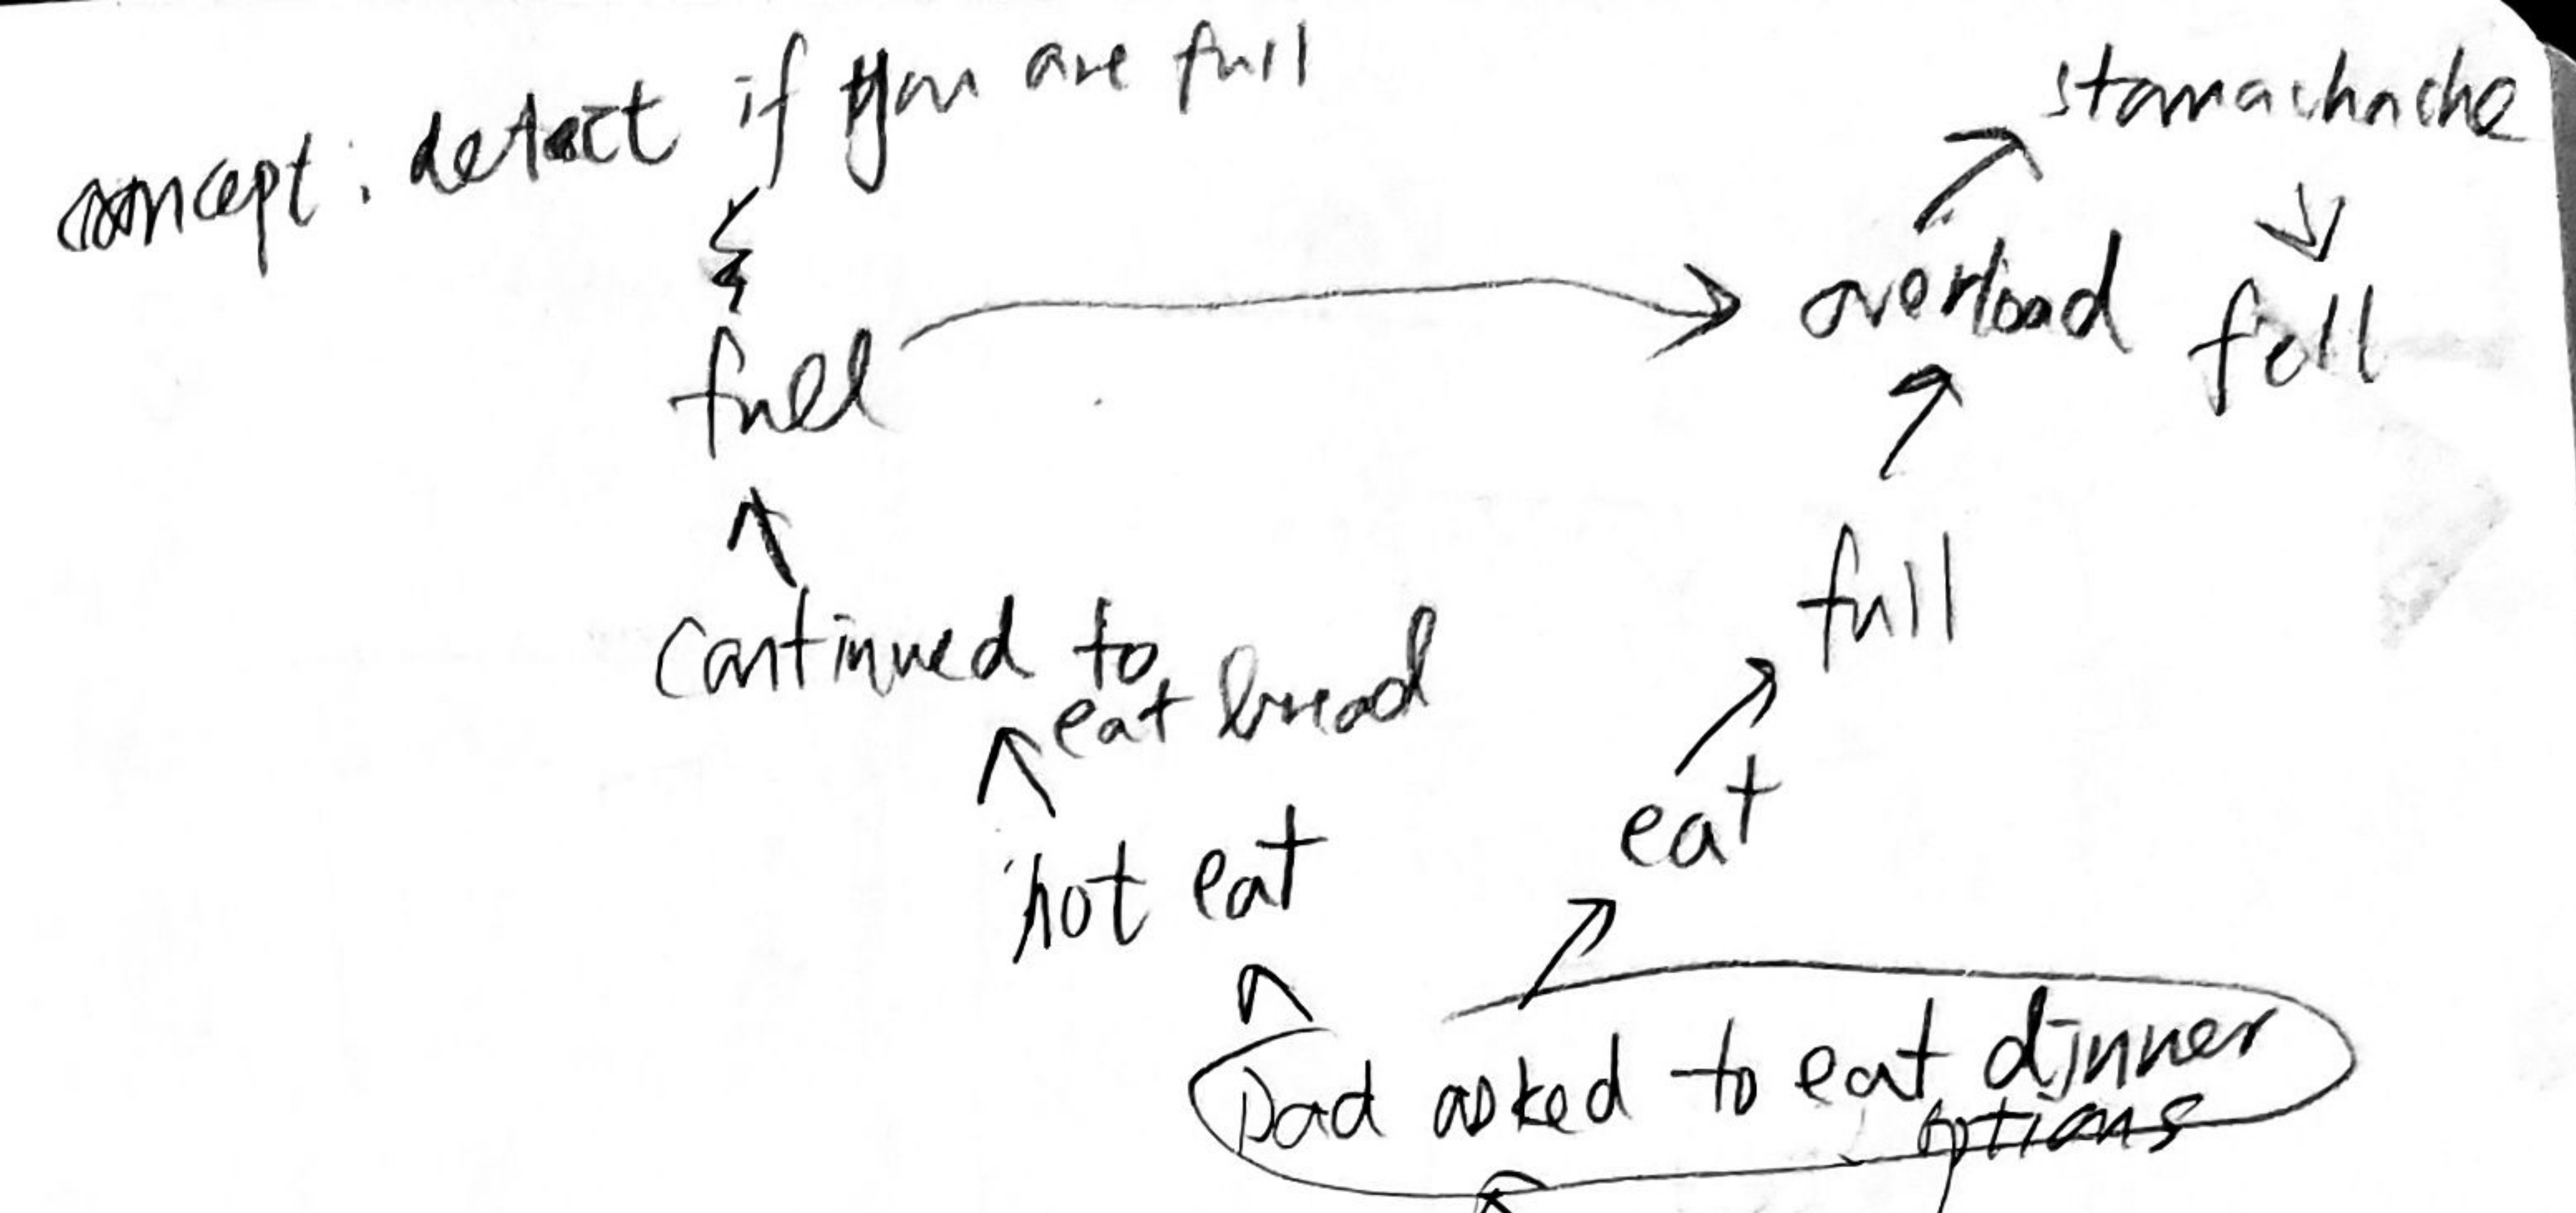 concept: detect if you are full
stomachache
overload fell
full
full
continued to
eat bread
eat
not eat
Dad asked to eat dinner
options